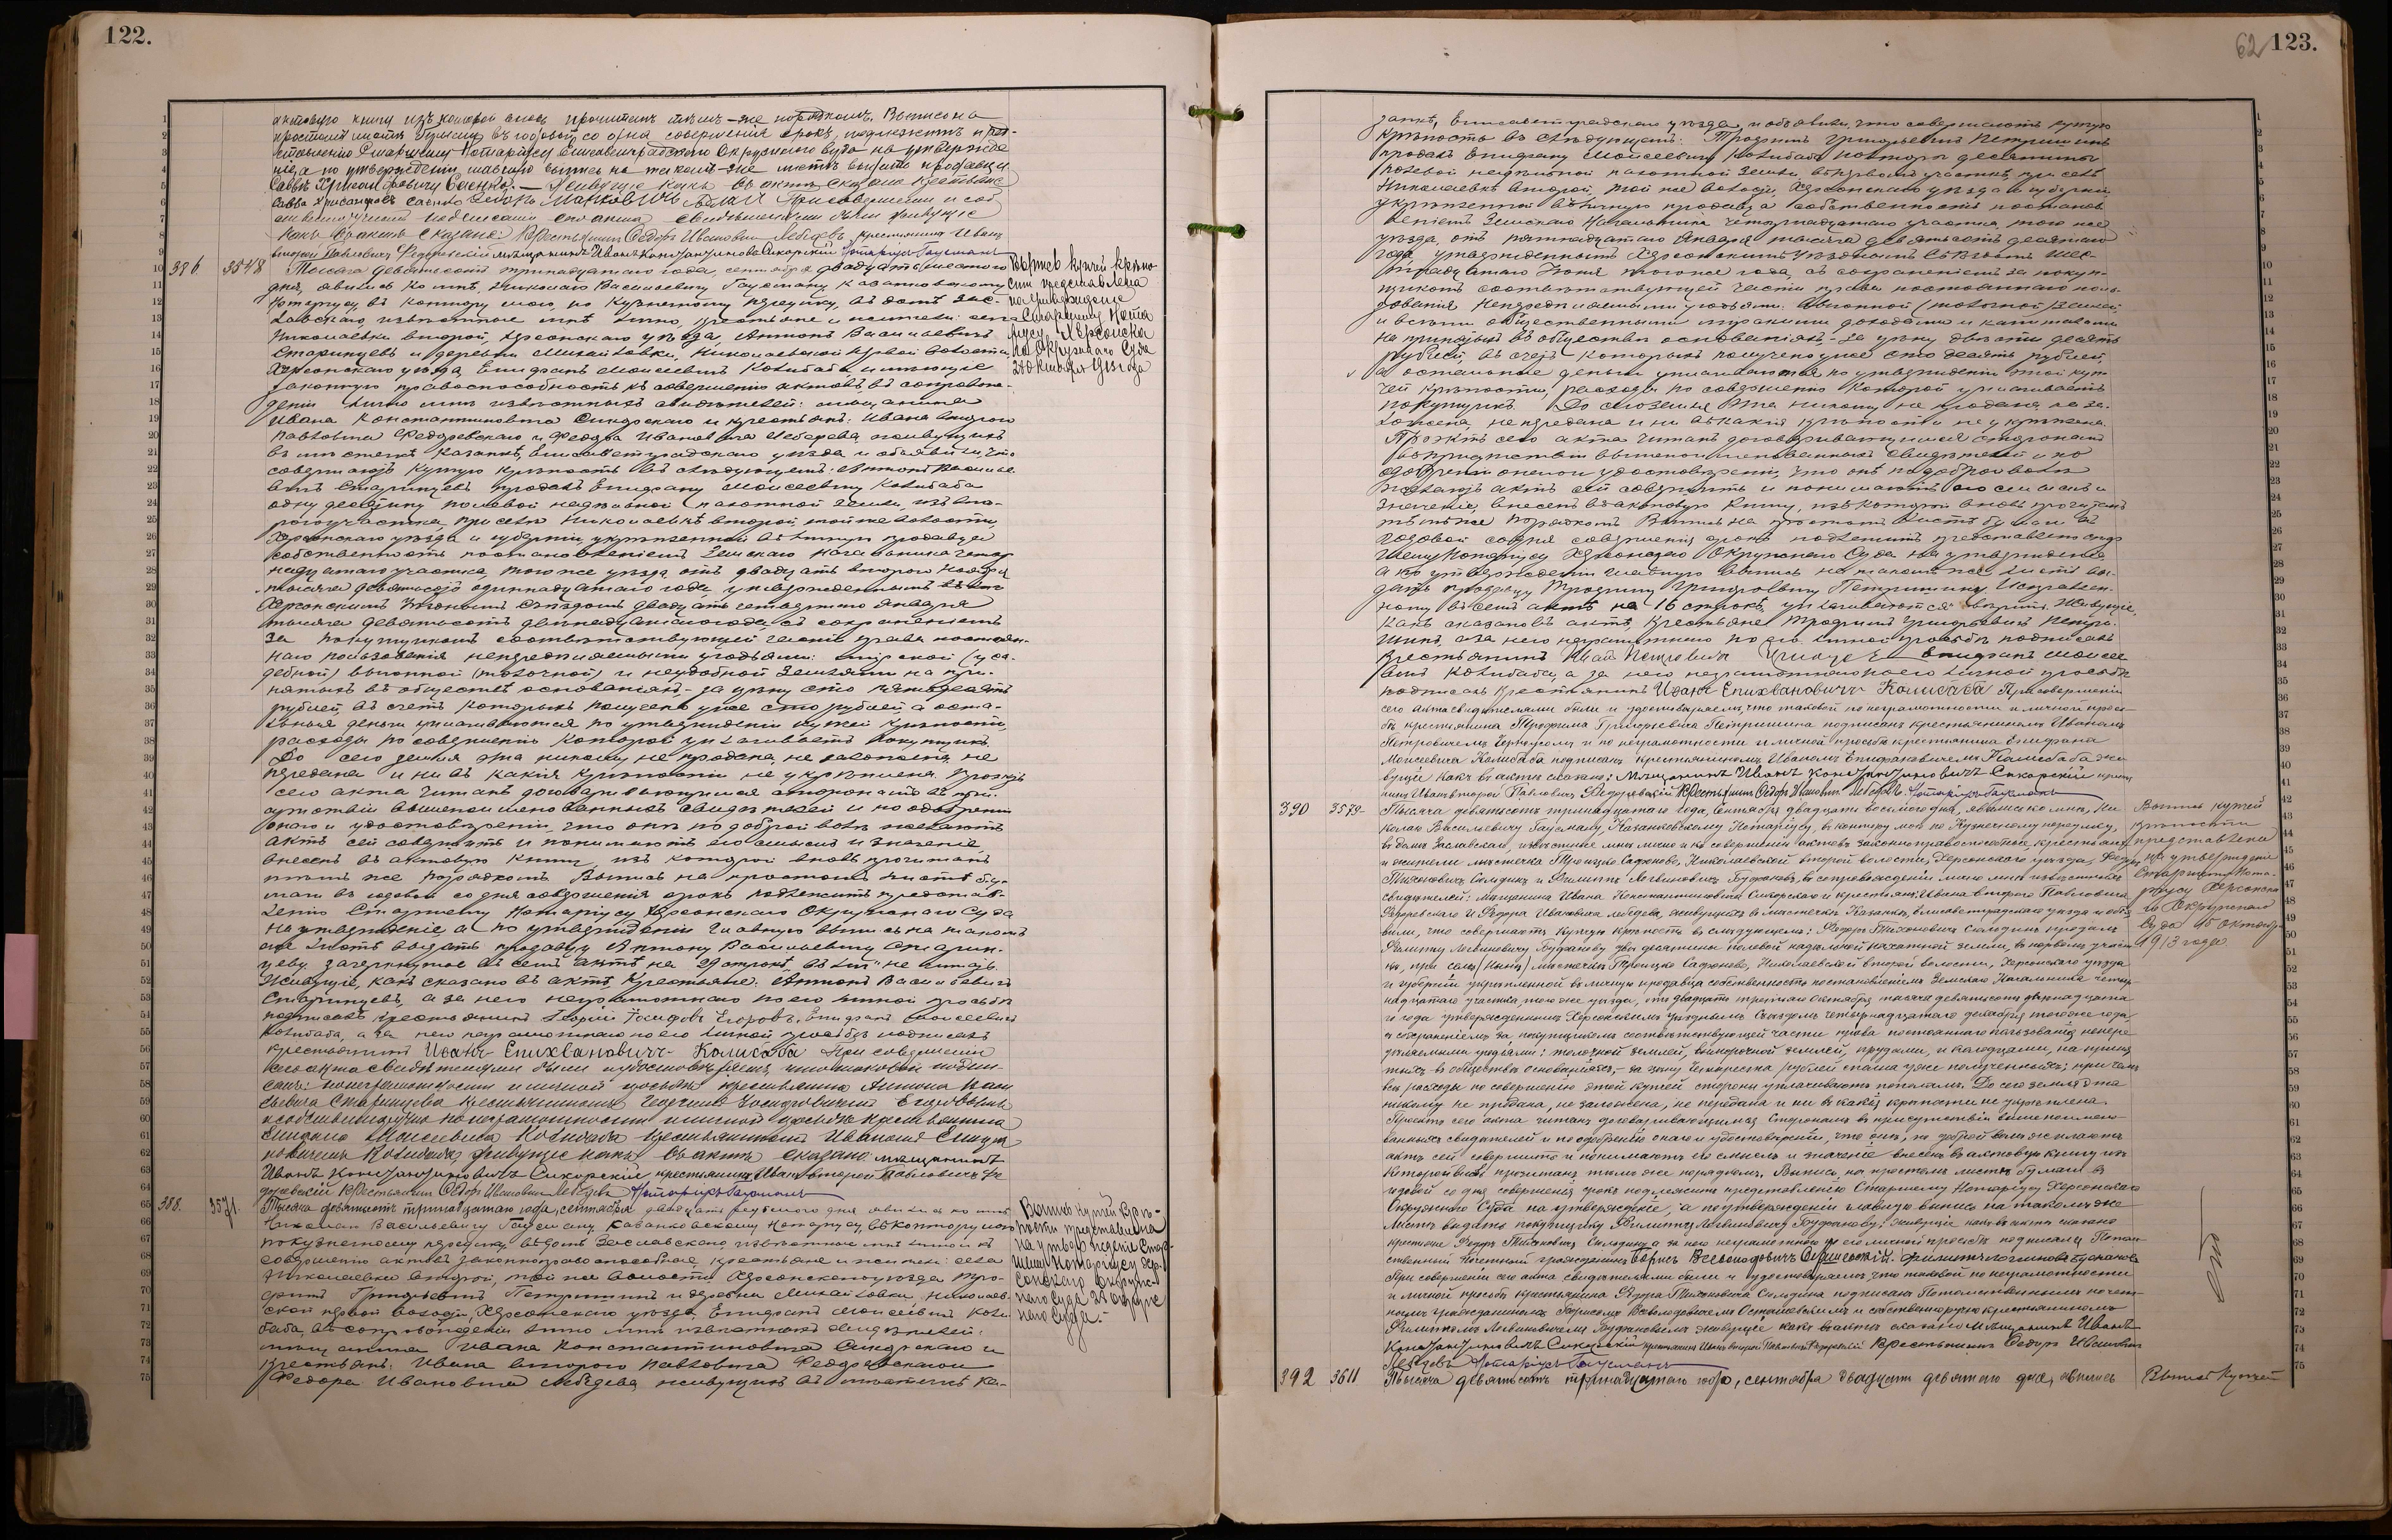 122.
актовую книгу изъ которой вновь прочитанъ тѣмъ-же порядкомъ. Выпись на
простомъ листѣ бумаги въ годовой со дня совершенія срокъ, подлежитъ пред-
ставленію Старшему Нотаріусу Елисаветградскаго Окружнаго Суда на утвержде
ніе, а по утвержденіи главную выпись на такомъ-же листѣ выдать продавцу
какъ въ актѣ сказано: Крестьянинъ Ѳедоръ Ивановичъ Лебедевъ крестьянинъ Иванъ
второй Павловичъ Федоревскій мѣщанинъ Иванъ Константиновичъ Сикорскій Нотаріусъ Гаусманъ
386 3548 Тысяча девятьсотъ тринадцатаго года, сентября двадцать шестого
дня, явились ко мнѣ, Николаю Васильевичу Гаусману Казанковскому
Нотаріусу, въ контору мою, по Кузнечному переулку, въ домѣ Зас-
лавскаго, извѣстные мнѣ лично, крестьяне и жители: села
Николаевки второй, Херсонскаго уѣзда, Антонъ Васильевичъ
Старинцевъ и деревни Михайловки, Николаевской первой волости,
Херсонскаго уѣзда, Епифанъ Моисеевичъ Колибаба имѣющіе
законную правоспособность къ совершенію актовъ въ сопровож-
деніи лично мнѣ извѣстныхъ свидѣтелей: мѣщанина
Ивана Константиновича Сикорскаго и крестьянъ: Ивана второго
Павловича Федоревскаго и Федора Ивановича Лебедева живущихъ
въ мѣстечкѣ Казанкѣ, Елисаветградскаго уѣзда и объявили, что
совершаютъ купчую крѣпость въ слѣдующемъ: Антонъ Василье-
вичъ Старинцевъ продалъ Епифану Моисеевичу Колибаба
одну десятину полевой надѣльной пахотной земли, изъ вто-
рого участка, при селѣ Николаевкѣ второй, той же волости,
Херсонскаго уѣзда и губерніи, укрѣпленной въ личную продавца
собственность постановленіемъ Земскаго Начальника четыр
надцатаго участка, того же уѣзда, отъ двадцать второго Ноября
тысяча девятьсотъ одиннадцатаго года, утвержденнымъ въ лич
Херсонскимъ Уѣзднымъ Съѣздомъ двадцать четвертаго Января
тысяча девятьсотъ двѣнадцатаго года, съ сохраненіемъ
за покупщикомъ соотвѣтствующей части права постоян-
наго пользованія непередѣляемыми угодьями: мірской (уса-
дебной) выгонной (толочной) и неудобной землями на при-
нятыхъ въ обществѣ основаніяхъ,- за цѣну сто пятьдесятъ
рублей, въ счетъ которыхъ получено уже сто рублей, а оста-
льныя деньги уплачиваются по утвержденіи купчей крѣпости,
расходы по совершенію которой уплачиваетъ покупщикъ.
До сего земля эта никому не продана, не заложена, не
передана и ни въ какія крѣпости не укрѣплена. Проектъ
сего акта читанъ договаривающимся сторонамъ въ при-
сутствіи вышепоименованныхъ свидѣтелей и по одобреніи
онаго и удостовѣреніи, что они по доброй волѣ желаютъ
актъ сей совершить и понимаютъ его смыслъ и значеніе,
внесенъ въ актовую книгу, изъ которой вновь прочитанъ
тѣмъ же порядкомъ. Выпись на простомъ листѣ бу-
маги въ годовой со дня совершенія срокъ подлежитъ представ-
ленію Старшему Нотаріусу Херсонскаго Окружнаго Суда
на утвержденіе, а по утвержденіи главную выпись на такомъ
же листѣ выдать продавцу Антону Васильевичу Старин-
цеву. Зачеркнутое въ семъ актѣ на 29 строкѣ „въ лич" не читать.
Живущіе, какъ сказано въ актѣ, Крестьяне: Антонъ Васильевичъ
Старинцевъ, а за него неграмотнаго по его личной просьбѣ
подписалъ крестьянинъ Георгій Іосифовъ Егоровъ, Епифанъ Моисеевичъ
Колибаба, а за него неграмотнаго по его личной просьбѣ подписалъ
крестьянинъ Иванъ Епихвановичъ Колисаба При совершеніи
сего акта свидѣтелями были и удостовѣряемъ, что таковой подпи
санъ: по неграмотности и личной просьбѣ крестьянина Антона Васи
льевича Старинцева крестьяниномъ Георгіемъ Іосифовичемъ Егоровымъ
Епифана Моисеевича Колибаба крестьяниномъ Иваномъ Епифа
новичемъ Колибаба, живущіе какъ въ актѣ сказано: мѣщанинъ
Иванъ Константиновичъ Сикорскій крестьянинъ Иванъ второй Павловичъ Фе
доревскій Крестьянин Ѳедоръ Ивановичъ Лебедевъ Нотаріусъ Гаусманъ
Выпись купчей крѣпо
сти представлена
на утвержденіе
Старшему Нота
ріусу Херсонска
го Окружнаго Суда
28 октября 1913 года
388. 3571. Тысяча девятьсотъ тринадцатаго года, сентября двадцать седьмого дня явились ко мнѣ
Николаю Васильевичу Гаусману, Казанковскому Нотаріусу, въ контору мою
по Кузнечному переулку, въ домѣ Заславскаго, извѣстные мнѣ лично и къ
совершенію актовъ законноправоспособные, крестьяне и жители: села
Николаевки второй, той же волости Херсонскаго уѣзда Тро-
фимъ Григорьевичъ Петришинъ и деревни Михайловки, Николаев-
ской первой волости, Херсонскаго уѣзда, Епифанъ Моисеевичъ Коли
баба, въ сопровожденіи лично мнѣ извѣстныхъ свидѣтелей:
мѣщанина Ивана Константиновича Сикорскаго и
крестьянъ: Ивана второго Павловича Федоревскаго и
Федора Ивановича Лебедева, живущихъ въ мѣстечкѣ Ка-
Выпись купчей крѣ-
пости представлена
на утвержденіе Стар-
шему Нотаріусу Хер-
сонскаго Окруж-
наго Суда 28 октября
123.
62
занкѣ, Елисаветградскаго уѣзда и объявили, что совершаютъ купчую
крѣпость въ слѣдующемъ: Трофимъ Григорьевичъ Петришинъ
продалъ Епифану Моисеевичу Колибаба полторы десятины
полевой надѣльной пахотной земли, въ первомъ участкѣ, при селѣ
Николаевкѣ второй, той же волости, Херсонскаго уѣзда и губерніи,
укрѣпленной въ личную продавца собственность постанов
леніемъ Земскаго Начальника четырнадцатаго участка, того же
уѣзда, отъ пятнадцатаго Января тысяча девятьсотъ десятаго
года, утвержденнымъ Херсонскимъ Уѣзднымъ Съѣздомъ шес-
надцатаго Іюня того же года, съ сохраненіемъ за покуп-
щикомъ соотвѣтствующей части права постояннаго поль-
зованія непередѣляемыми угодьями: выгонной (толочной) землей,
и всѣми общественными мірскими доходами и капиталами
на принятыхъ въ обществѣ основаніяхъ,- за цѣну двѣсти десять
рублей, въ счетъ которыхъ получено уже сто десять рублей,
а остальныя деньги уплачиваются по утвержденіи этой куп-
чей крѣпости, расходы по совершенію которой уплачиваетъ
покупщикъ. До сего земля эта никому не продана, не за-
ложена, не передана и ни въ какія крѣпости не укрѣплена.
Проектъ сего акта читанъ договаривающимся сторонамъ
въ присутствіи вышепоименованныхъ свидѣтелей и по
одобреніи онаго и удостовѣреніи, что они по доброй волѣ
желаютъ актъ сей совершить и понимаютъ его смыслъ и
значеніе, внесенъ въ актовую книгу, изъ которой вновь прочитанъ
тѣмъ же порядкомъ. Выпись на простомъ листѣ бумаги въ
годовой со дня совершенія срокъ подлежитъ представленію Стар
шему Нотаріусу Херсонскаго Окружнаго Суда на утвержденіе
а по утвержденіи главную выпись на такомъ же листѣ вы-
дать продавцу Трофиму Григорьевичу Петришину. Исправлен-
ному въ семъ актѣ на 16 строкѣ „уплачиваются" вѣрить. Живущіе,
какъ сказано въ актѣ, крестьяне Трофимъ Григорьевичъ Петри-
шинъ, а за него неграмотнаго по его личной просьбѣ подписалъ
крестьянинъ Епифанъ Моисее
вичъ Колибаба, а за него неграмотнаго по его личной просьбѣ
подписалъ крестьянинъ Иванъ Епихвановичъ Колисаба При совершеніи
сего акта свидѣтелями были и удостовѣряемъ, что таковой по неграмотности и личной прось-
бѣ крестьянина Трофима Григорьевича Петришина подписанъ крестьяниномъ Иваномъ
Петровичемъ и по неграмотности и личной просьбѣ крестьянина Епифана
Моисеевича Колибаба подписанъ крестьяниномъ Иваномъ Епифановичемъ Колибаба, жи
вущіе какъ въ актѣ сказано: Мѣщанинъ Иванъ Константиновичъ Сикорскій крестья
нинъ Иванъ второй Павловичъ Федоревскій Крестьянин Ѳедоръ Ивановичъ Лебедевъ. Нотаріусъ Гаусманъ
390 3579 Тысяча девятьсотъ тринадцатаго года, Сентября двадцать восьмого дня, явились ко мнѣ, Ни
колаю Васильевичу Гаусману, Казанковскому Нотаріусу, въ контору мою по Кузнечному переулку,
въ домѣ Заславскаго, извѣстные мнѣ лично и къ совершенію актовъ законноправоспособные крестьяне
и жители мѣстечка Троицко Сафоново, Николаевской второй волости, Херсонскаго уѣзда, Федоръ
Тихоновичъ и Филиппъ Логвиновичъ въ сопровожденіи лично мнѣ извѣстныхъ
свидѣтелей: мѣщанина Ивана Константиновича Сикорскаго и крестьянъ: Ивана второго Павловича
Федоревскаго и Федора Ивановича Лебедева, живущихъ въ мѣстечкѣ Казанкѣ, Елисаветградскаго уѣзда и объя
вили, что совершаютъ купчую крѣпость въ слѣдующемъ: Федоръ Тихоновичъ продалъ
Филиппу Логвиновичу двѣ десятины полевой надѣльной пахотной земли, въ первомъ участ
кѣ, при селѣ (нынѣ) мѣстечкѣ Троицко Сафоново, Николаевской второй волости, Херсонскаго уѣзда
и губерніи укрѣпленной въ личную продавца собственность постановленіемъ Земскаго Начальника четыр
надцатаго участка того же уѣзда, отъ двадцать третьяго Октября тысяча девятьсотъ двѣнадцата
го года утвержденнымъ Херсонскимъ Уѣзднымъ Съѣздомъ четырнадцатаго декабря того же года,
съ сохраненіемъ за покупщикомъ соотвѣтствующей части права постояннаго пользованія непере
дѣляемыми угодьями: толочной землей, прудами, и колодцами, на приня
тыхъ въ обществѣ основаніяхъ,- за цѣну четыреста рублей сполна уже полученныхъ; при чемъ
всѣ расходы по совершенію этой купчей стороны уплачиваютъ пополамъ. До сего земля эта
никому не продана, не заложена, не передана и ни въ какія крѣпости не укрѣплена.
Проектъ сего акта читанъ договаривающимся Сторонамъ въ присутствіи вышепоимено
ванныхъ свидѣтелей и по одобреніи онаго и удостовѣреніи, что они, по доброй волѣ желаютъ
актъ сей совершить и понимаютъ его смыслъ и значеніе внесенъ въ актовую книгу изъ
которой вновь прочитанъ тѣмъ же порядкомъ. Выпись на простомъ листѣ бумаги въ
годовой со дня совершенія срокъ подлежитъ представленію Старшему Нотаріусу Херсонскаго
Окружнаго Суда на утвержденіе, а по утвержденіи главную выпись на такомъ же
листѣ выдать покупщику Филиппу Логвиновичу живущіе какъ въ актѣ сказано
крестьяне Федоръ Тихоновичъ а за него неграмотнаго по его личной просьбѣ подписалъ Потом
ственный Почетный гражданинъ Борисъ Всеволодовичъ
При совершеніи сего акта свидѣтелями были и удостовѣряемъ что таковой по неграмотности
и личной просьбѣ крестьянина Федора Тихоновича подписанъ Потомственнымъ почет-
нымъ гражданиномъ Борисомъ Всеволодовичемъ и собственноручно крестьяниномъ
Филиппомъ Логвиновичемъ живущіе какъ въ актѣ сказано мѣщанинъ Иванъ
Константиновичъ Сикорскій крестьянинъ Иванъ второй Павловичъ Федоревскій Крестьянин Ѳедоръ Ивановичъ
Лебедевъ Нотаріусъ Гаусманъ
Выпись купчей
крѣпости
представлена
на утвержденіе
Старшему Нота-
ріусу Херсонска
го Окружнаго
Суда 15 октября
1913 года
392 3611 Тысяча девятьсотъ тринадцатаго года, сентября двадцать девятаго дня, явились
Выпись купчей